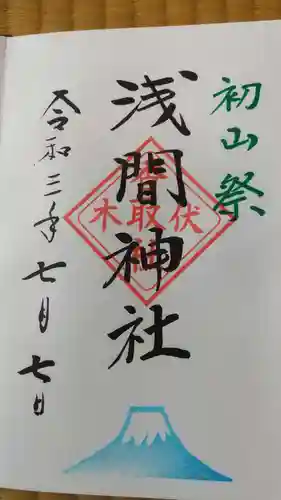 初山祭
浅間神社
令和三年七月七日
木取伏